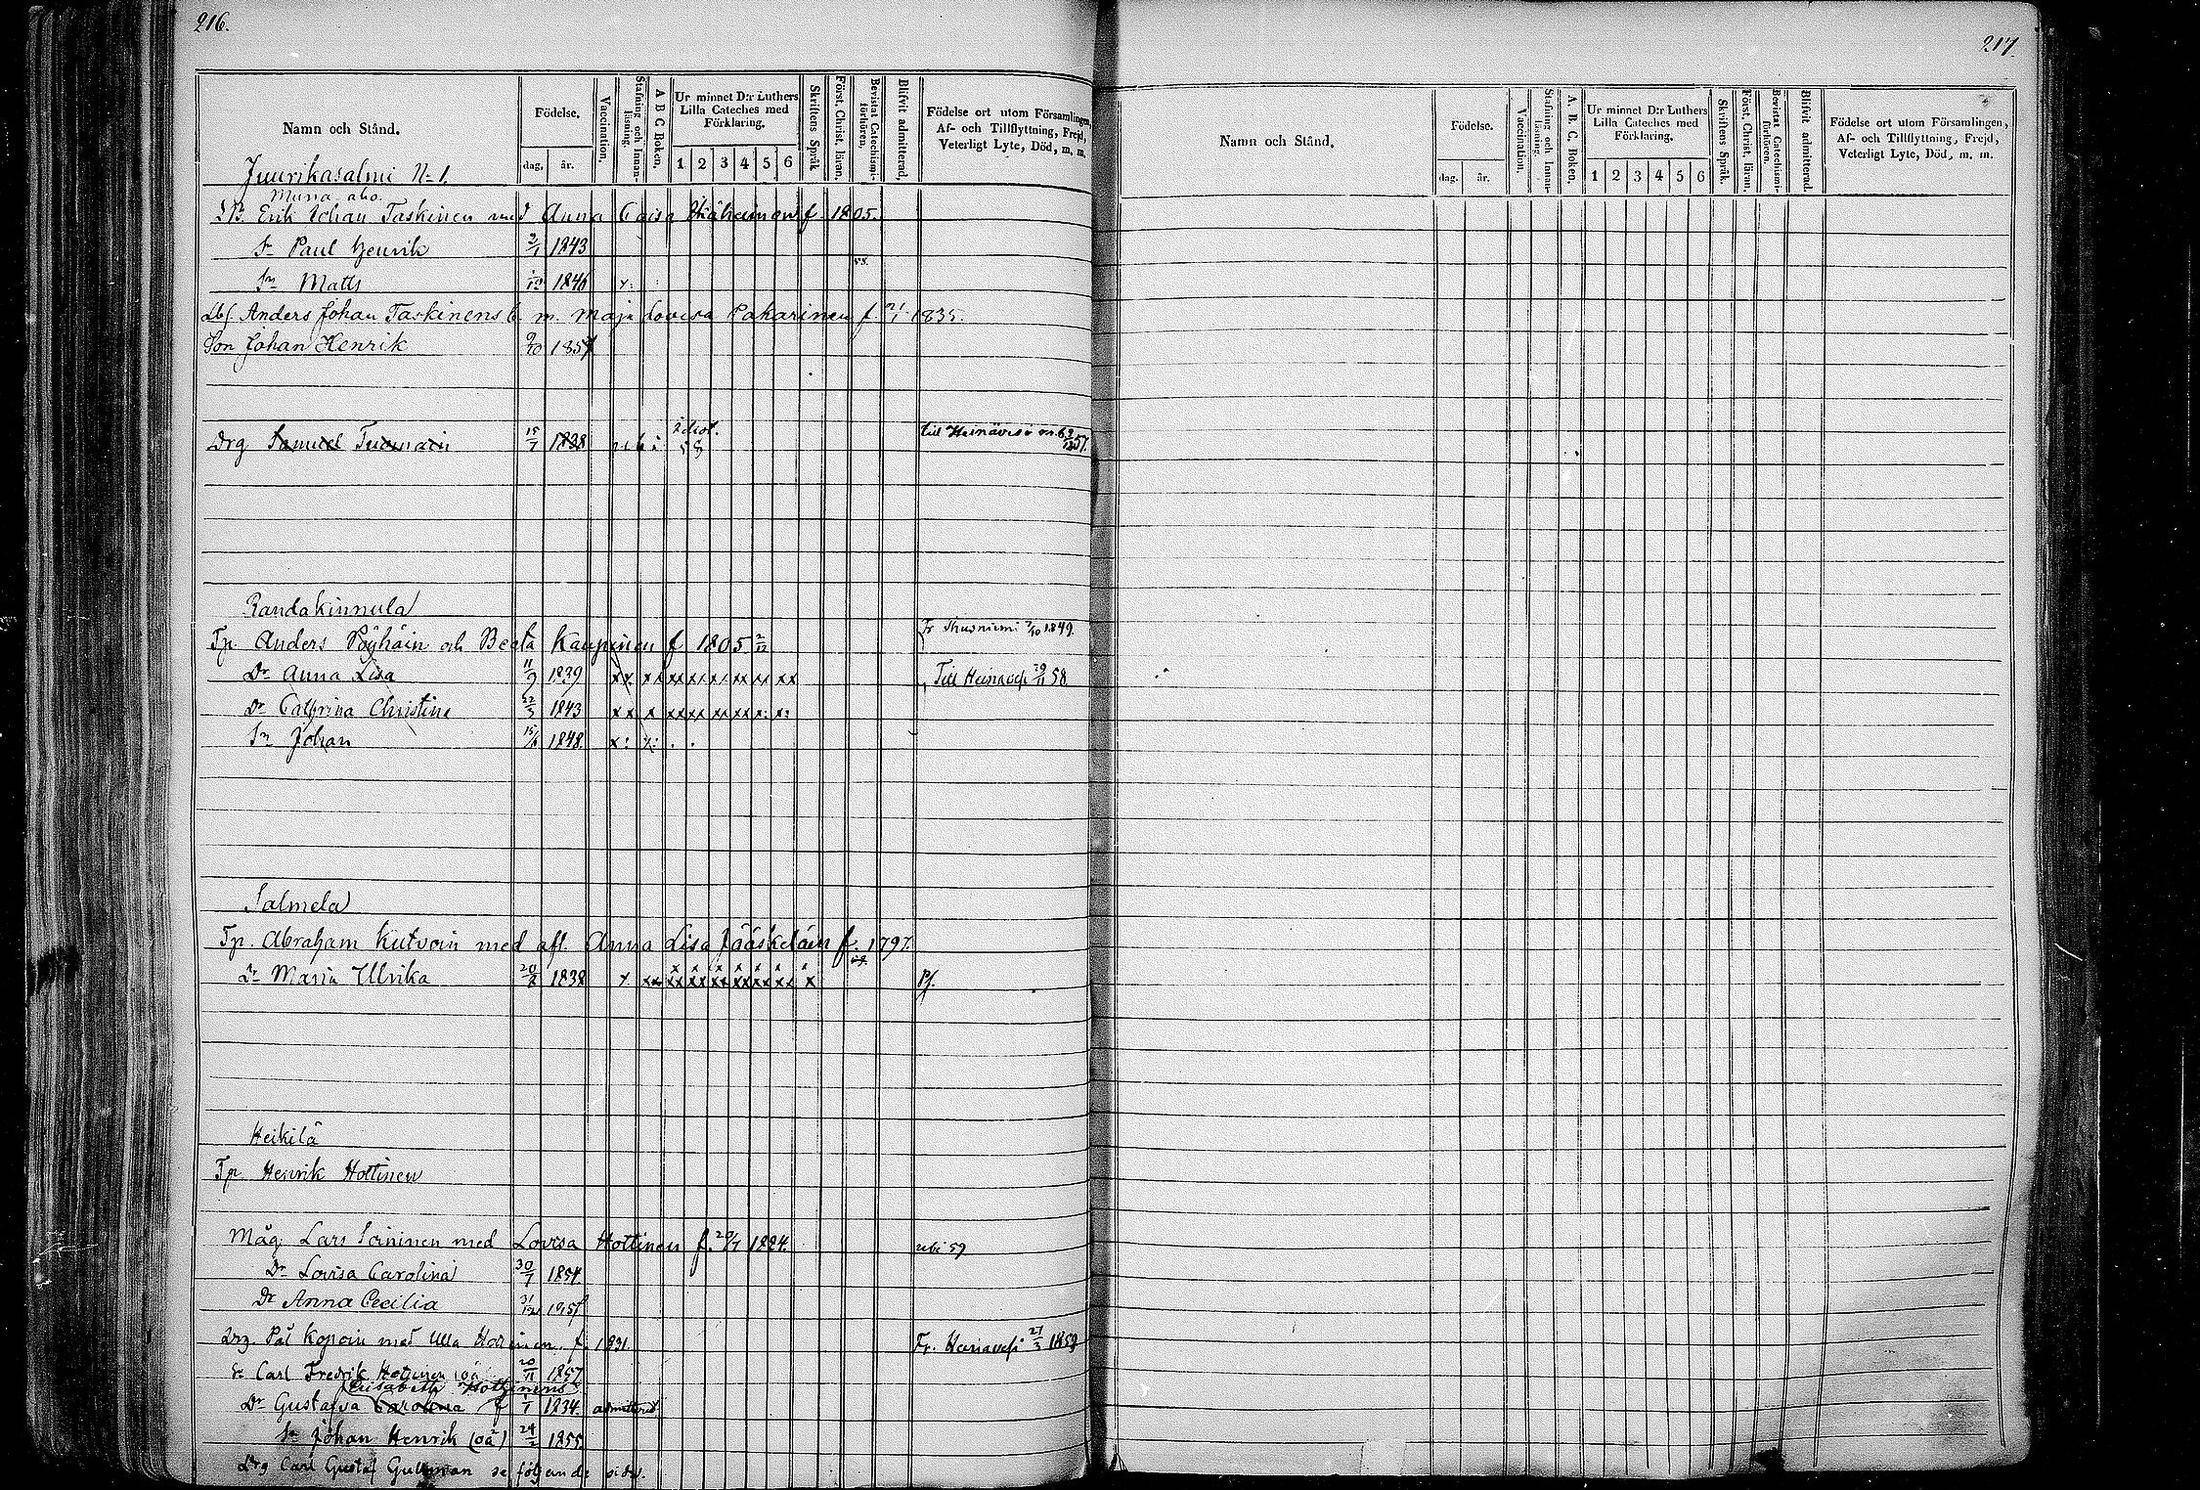 216.
Namn och Stånd.
Födelse.
dag. år.
Vaccination.
Stafning och Innan-läsning.
A B C Boken.
Ur minnet D:r Luthers Lilla Cateches med Förklaring.
1 2 3 4 5 6
Skriftens Språk
Först. Christ. läran.
Bevistat Catechismi-förhören.
Blifvit admitterad.
Födelse ort utom Församlingen,
Af- och Tillflyttning, Frejd,
Veterligt Lyte, Död, m. m.
Juurikasalmi N=1.
aho.
Erik Johan Taskinen med Anna Caisa f. 1805.
Sn Paul Henrik 2/1 1843
58.
Sn Matts 1846 x:
Anders Johan Taskinens m. Maja Lovisa Pakarinen f. 21/1 1835.
Son Johan Henrik 9/10 1857
Drg Samuel 15/7 1838 Idiot. 58 till Heinävesi 57.
Randakinnula
Tp. Anders Pöyhäin och Beata Kaupinen f 1805 2/12 Fr 7/10 1849.
Dr Anna Lisa 11/9 1839 xx xx xx xx xx xx xx xx Till Heinävesi 58
Dr Cathrina Christina 22/3 1843 xx x xx xx xx xx x: x:
Sn Johan 15/6 1848. x: x: . .
Salmela
Tp. Abraham Kutvoin med afl. Anna Lisa Jääskeläin f. 1797.
Dr Maria Ulrika 20/8 1838 x xx xx xx xx xx xx xx x Pf.
Heikilä
Tp. Henrik Hottinen
Måg. Lars Soininen med Lovisa Hottinen f. 20/7 1824. 59
Dr Lovisa Carolina 30/7 1854.
Dr Anna Cecilia 31/12 1857
Drg. Pål Kopoin med Ulla Hottinen f. 1831. Fr. Heinavesi 27/3 1859
Sn Carl Fredrik Hottinen (oä) 20/11 1857
Elisabeth Hottinens
Dr Gustafva Carolina f 1/1 1834. admitterad
Sn Johan Henrik (oä) 24/2 1855.
Drg Carl Gustaf Gullman se följande sidor.
217.
Namn och Stånd.
Födelse.
dag. år.
Vaccination.
Stafning och Innan-läsning.
A. B. C. Boken.
Ur minnet D:r Luthers Lilla Cateches med Förklaring.
1 2 3 4 5 6
Skriftens Språk.
Först. Christ. läran.
Bevistat Catechismi-förhören.
Blifvit admitterad.
Födelse ort utom Församlingen,
Af- och Tillflyttning, Frejd,
Veterligt Lyte, Död, m. m.